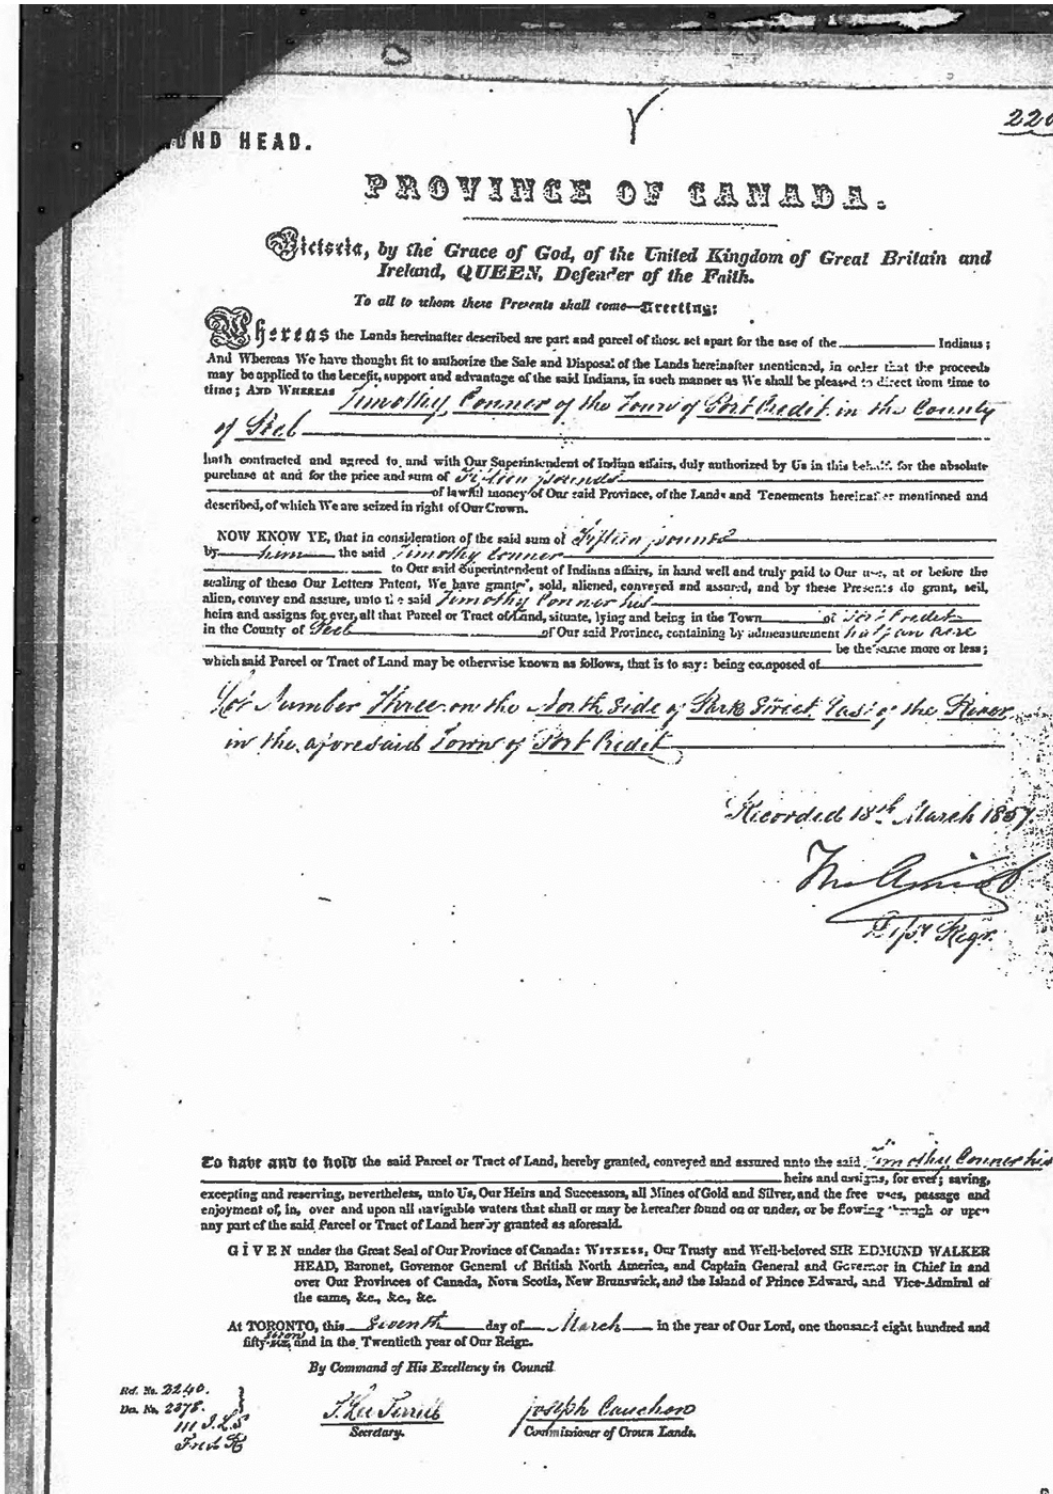 220
UND HEAD.
PROVINCE OF CANADA.
Victoria, by the Grace of God, of the United Kingdom of Great Britain and
Ireland, QUEEN, Defender of the Faith.
To all to whom these Presents shall come—Greeting:
Whereas the Lands hereinafter described are part and parcel of those set apart for the use of the Indians;
And Whereas We have thought fit to authorize the Sale and Disposal of the Lands hereinafter mentioned, in order that the proceeds
may be applied to the benefit, support and advantage of the said Indians, in such manner as We shall be pleased to direct from time to
time; AND WHEREAS Timothy Conner of the Town of Port Credit in the County
of Peel
hath contracted and agreed to and with Our Superintendent of Indian affairs, duly authorized by Us in this behalf, for the absolute
purchase at and for the price and sum of Fifteen pounds
of lawful money of Our said Province, of the Lands and Tenements hereinafter mentioned and
described, of which We are seized in right of Our Crown.
NOW KNOW YE, that in consideration of the said sum of Fifteen pounds
by him the said Timothy Conner
to Our said Superintendent of Indians affairs, in hand well and truly paid to Our use, at or before the
sealing of these Our Letters Patent, We have granted, sold, aliened, conveyed and assured, and by these Presents do grant, sell,
alien, convey and assure, unto the said Timothy Conner his
heirs and assigns for ever, all that Parcel or Tract of Land, situate, lying and being in the Town of Port Credit
in the County of Peel of Our said Province, containing by admeasurement half an acre
be the same more or less;
which said Parcel or Tract of Land may be otherwise known as follows, that is to say: being composed of
Lot Number Three on the North side of Park Street East of the River
in the aforesaid Town of Port Credit
Recorded 18th March 1857.
Depy Regr.
To have and to hold the said Parcel or Tract of Land, hereby granted, conveyed and assured unto the said Timothy Conner his
heirs and assigns, for ever; saving,
excepting and reserving, nevertheless, unto Us, Our Heirs and Successors, all Mines of Gold and Silver, and the free uses, passage and
enjoyment of, in, over and upon all navigable waters that shall or may be hereafter found on or under, or be flowing through or upon
any part of the said Parcel or Tract of Land hereby granted as aforesaid.
GIVEN under the Great Seal of Our Province of Canada: WITNESS, Our Trusty and Well-beloved SIR EDMUND WALKER
HEAD, Baronet, Governor General of British North America, and Captain General and Governor in Chief in and
over Our Provinces of Canada, Nova Scotia, New Brunswick, and the Island of Prince Edward, and Vice-Admiral of
the same, &c., &c., &c.
At TORONTO, this Seventh day of March in the year of Our Lord, one thousand eight hundred and
fifty-six seven and in the Twentieth year of Our Reign.
By Command of His Excellency in Council
Rd. No. 2240.
Da. No. 2378.
T. Lee Terrill
Secretary.
Joseph Cauchon
Commissioner of Crown Lands.